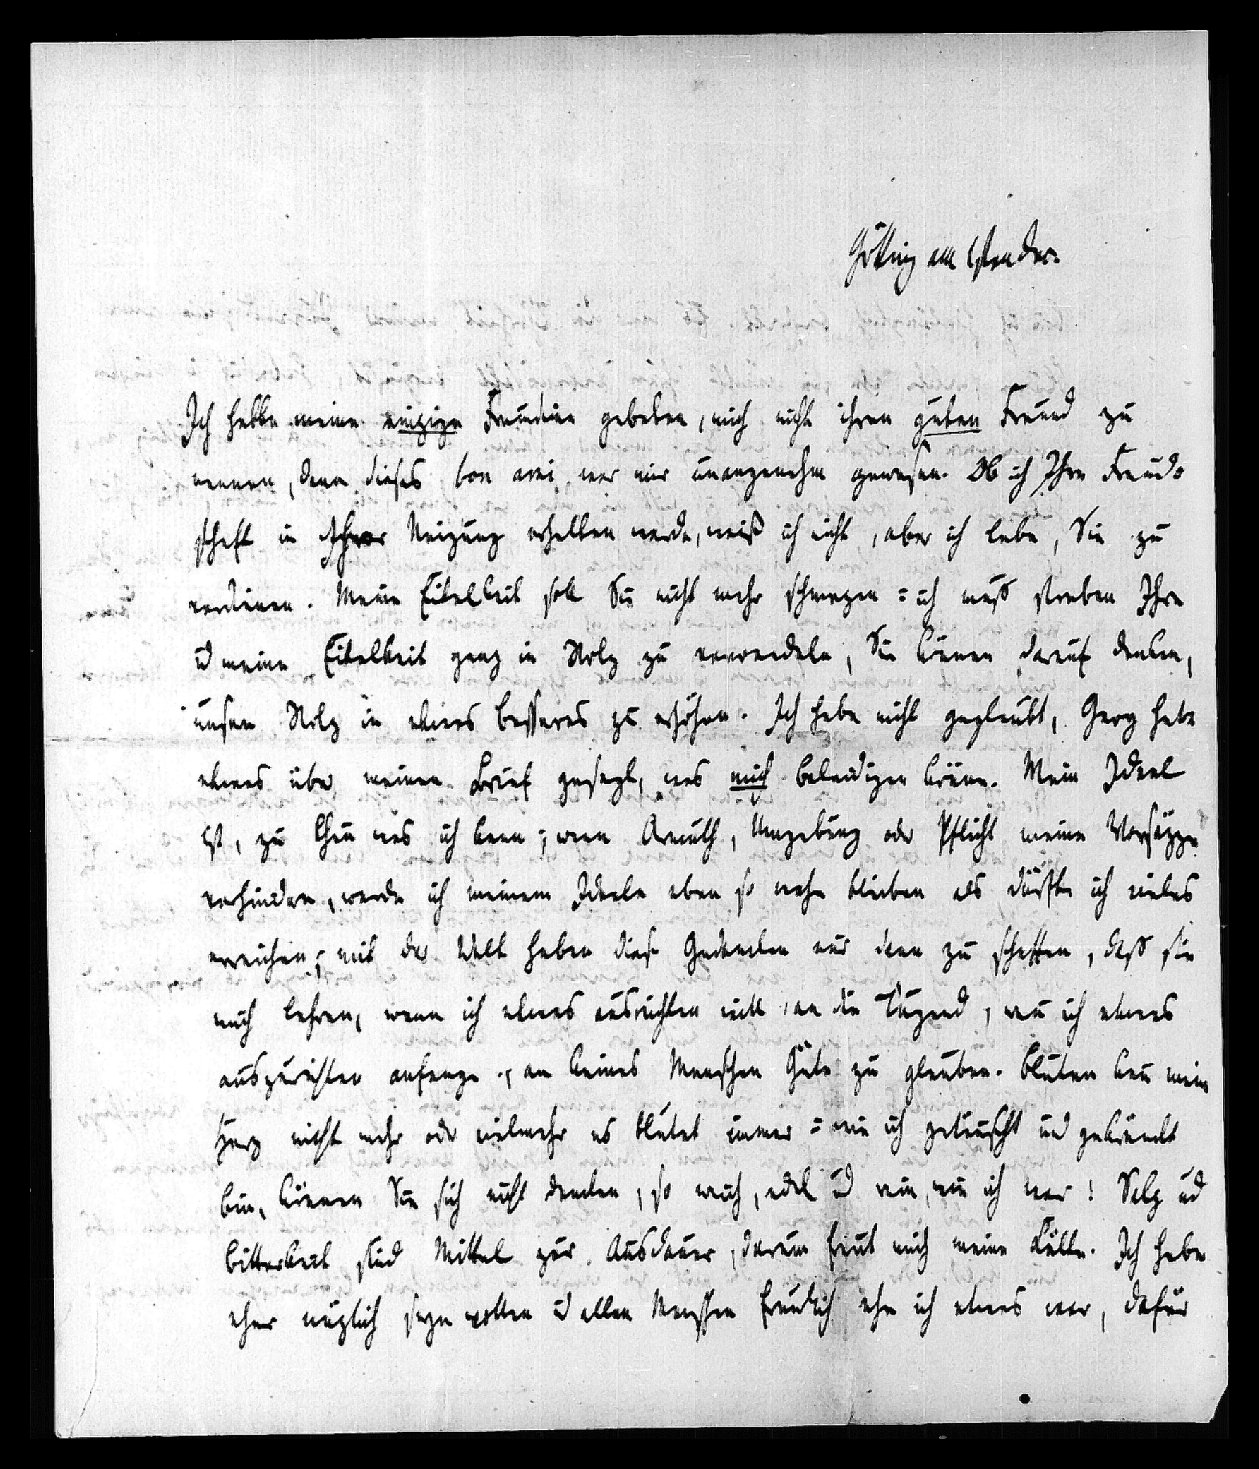 Götting am 1sten Dec.
Ich hatte meine einzige Freundinn gebeten, mich nicht ihren guten Freund zu
nennen, denn dieses bon ami war mir unangenehm gewesen. Ob ich Ihre Freund-
schaft in Ihrer Neigung erhalten werde, weiß ich nicht, aber ich lebe, Sie zu
verdienen. Meine Eitelkeit soll Sie nicht mehr schmerzen = ich muß streben Ihre
ud meine Eitelkeit ganz in Stolz zu verwandeln, Sie können darauf denken,
unsern Stolz in etwas besseres zu erhöhen. Ich habe nicht geglaubt, Georg habe
etwas über meinen Brief gesagt, was mich beleidigen könne. Mein Ideal
ist, zu thun was ich kann; wenn Armuth, Umgebung oder Pflicht meine Vorsäzze
verhindern, werde ich meinem Ideale eben so nahe bleiben als dürfte ich vieles
erreichen; mit der Welt haben diese Gedanken nur dann zu schaffen, daß sie
mich lehren, wenn ich etwas ausrichten will an die Tugend, wenn ich etwas
auszurichten anfange, an keines Menschen Güte zu glauben. Bluten kan mein
Herz nicht mehr oder vielmehr es blutet immer = wie ich getäuscht und gekränckt
bin, können Sie sich nicht denken, so weich, edel ud rein, wie ich war! Stolz ud
Bitterkeit sind Mittel zur Ausdauer, darum freut mich meine Kälte. Ich habe
eher nüzlich seyn wollen ud allen Menschen freundlich ehe ich etwas war, dafür